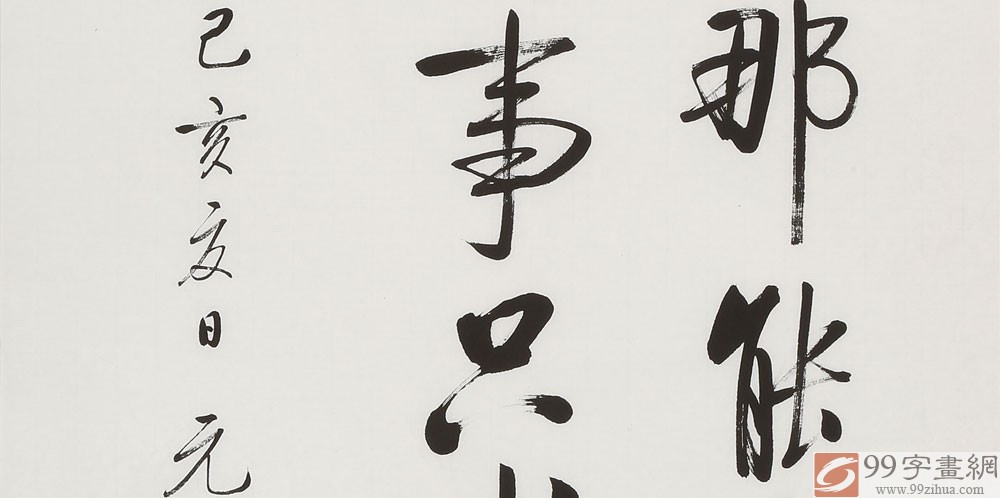 那能
事只
己亥夏日元
99字畫網
www.99zihua.com